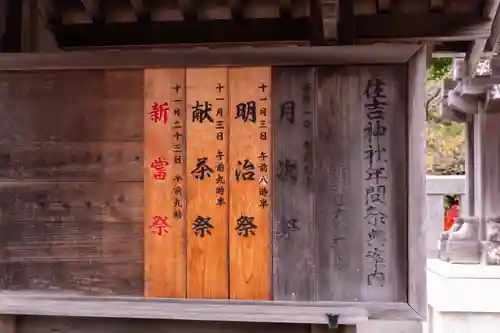 住吉神社年間祭典案内
月次祭
十一月三日 午前八時半
明治祭
十一月三日 午前九時半
献茶祭
十一月二十三日 午前九時
新嘗祭